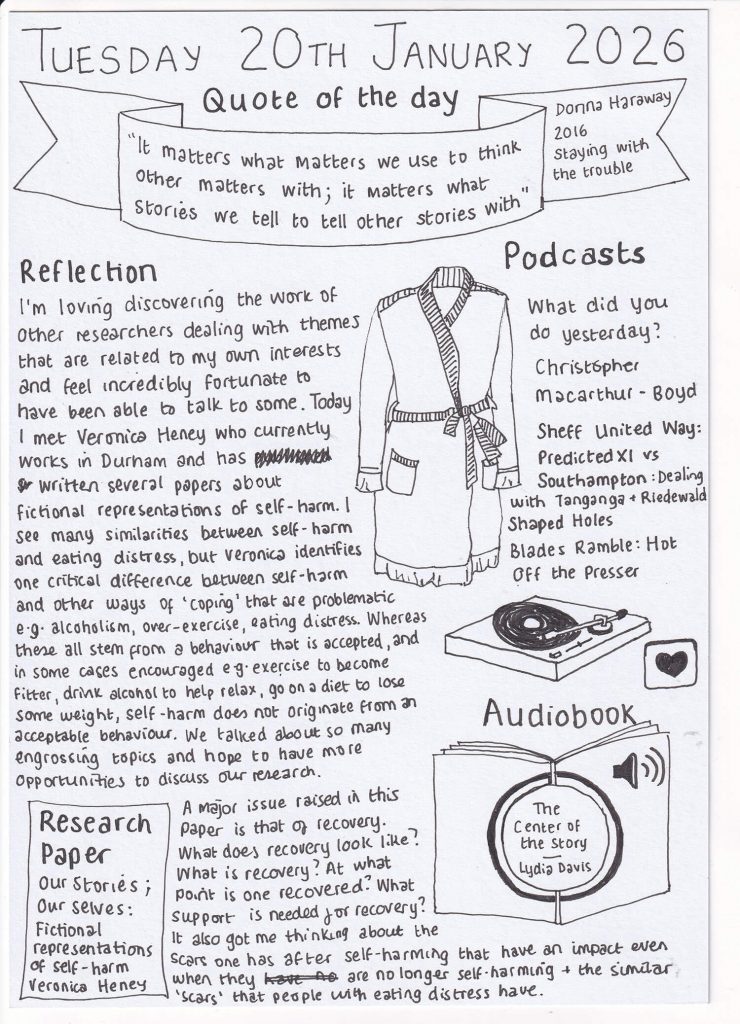 TUESDAY 20TH JANUARY 2026
Quote of the day
"It matters what matters we use to think
other matters with; it matters what
stories we tell to tell other stories with"
Donna Haraway
2016
Staying with
the trouble
Reflection
I'm loving discovering the work of
other researchers dealing with themes
that are related to my own interests
and feel incredibly fortunate to
have been able to talk to some. Today
I met Veronica Heney who currently
works in Durham and has
written several papers about
fictional representations of self-harm. I
see many similarities between self-harm
and eating distress, but Veronica identifies
one critical difference between self-harm
and other ways of 'coping' that are problematic
e.g. alcoholism, over-exercise, eating distress. Whereas
these all stem from a behaviour that is accepted, and
in some cases encouraged e.g. exercise to become
fitter, drink alcohol to help relax, go on a diet to lose
some weight, self-harm does not originate from an
acceptable behaviour. We talked about so many
engrossing topics and hope to have more
opportunities to discuss our research.
Podcasts
What did you
do yesterday?
Christopher
Macarthur-Boyd
Sheff United Way:
Predicted XI vs
Southampton: Dealing
with Tanganga + Riedewald
Shaped Holes
Blades Ramble: Hot
Off the Presser
Audiobook
The
Center of
the Story
Lydia Davis
Research
Paper
Our Stories;
Our selves:
Fictional
representations
of self-harm
Veronica Heney
A major issue raised in this
paper is that of recovery.
What does recovery look like?
What is recovery? At what
point is one recovered? What
support is needed for recovery?
It also got me thinking about the
scars one has after self-harming that have an impact even
when they have no are no longer self-harming + the similar
'scars' that people with eating distress have.